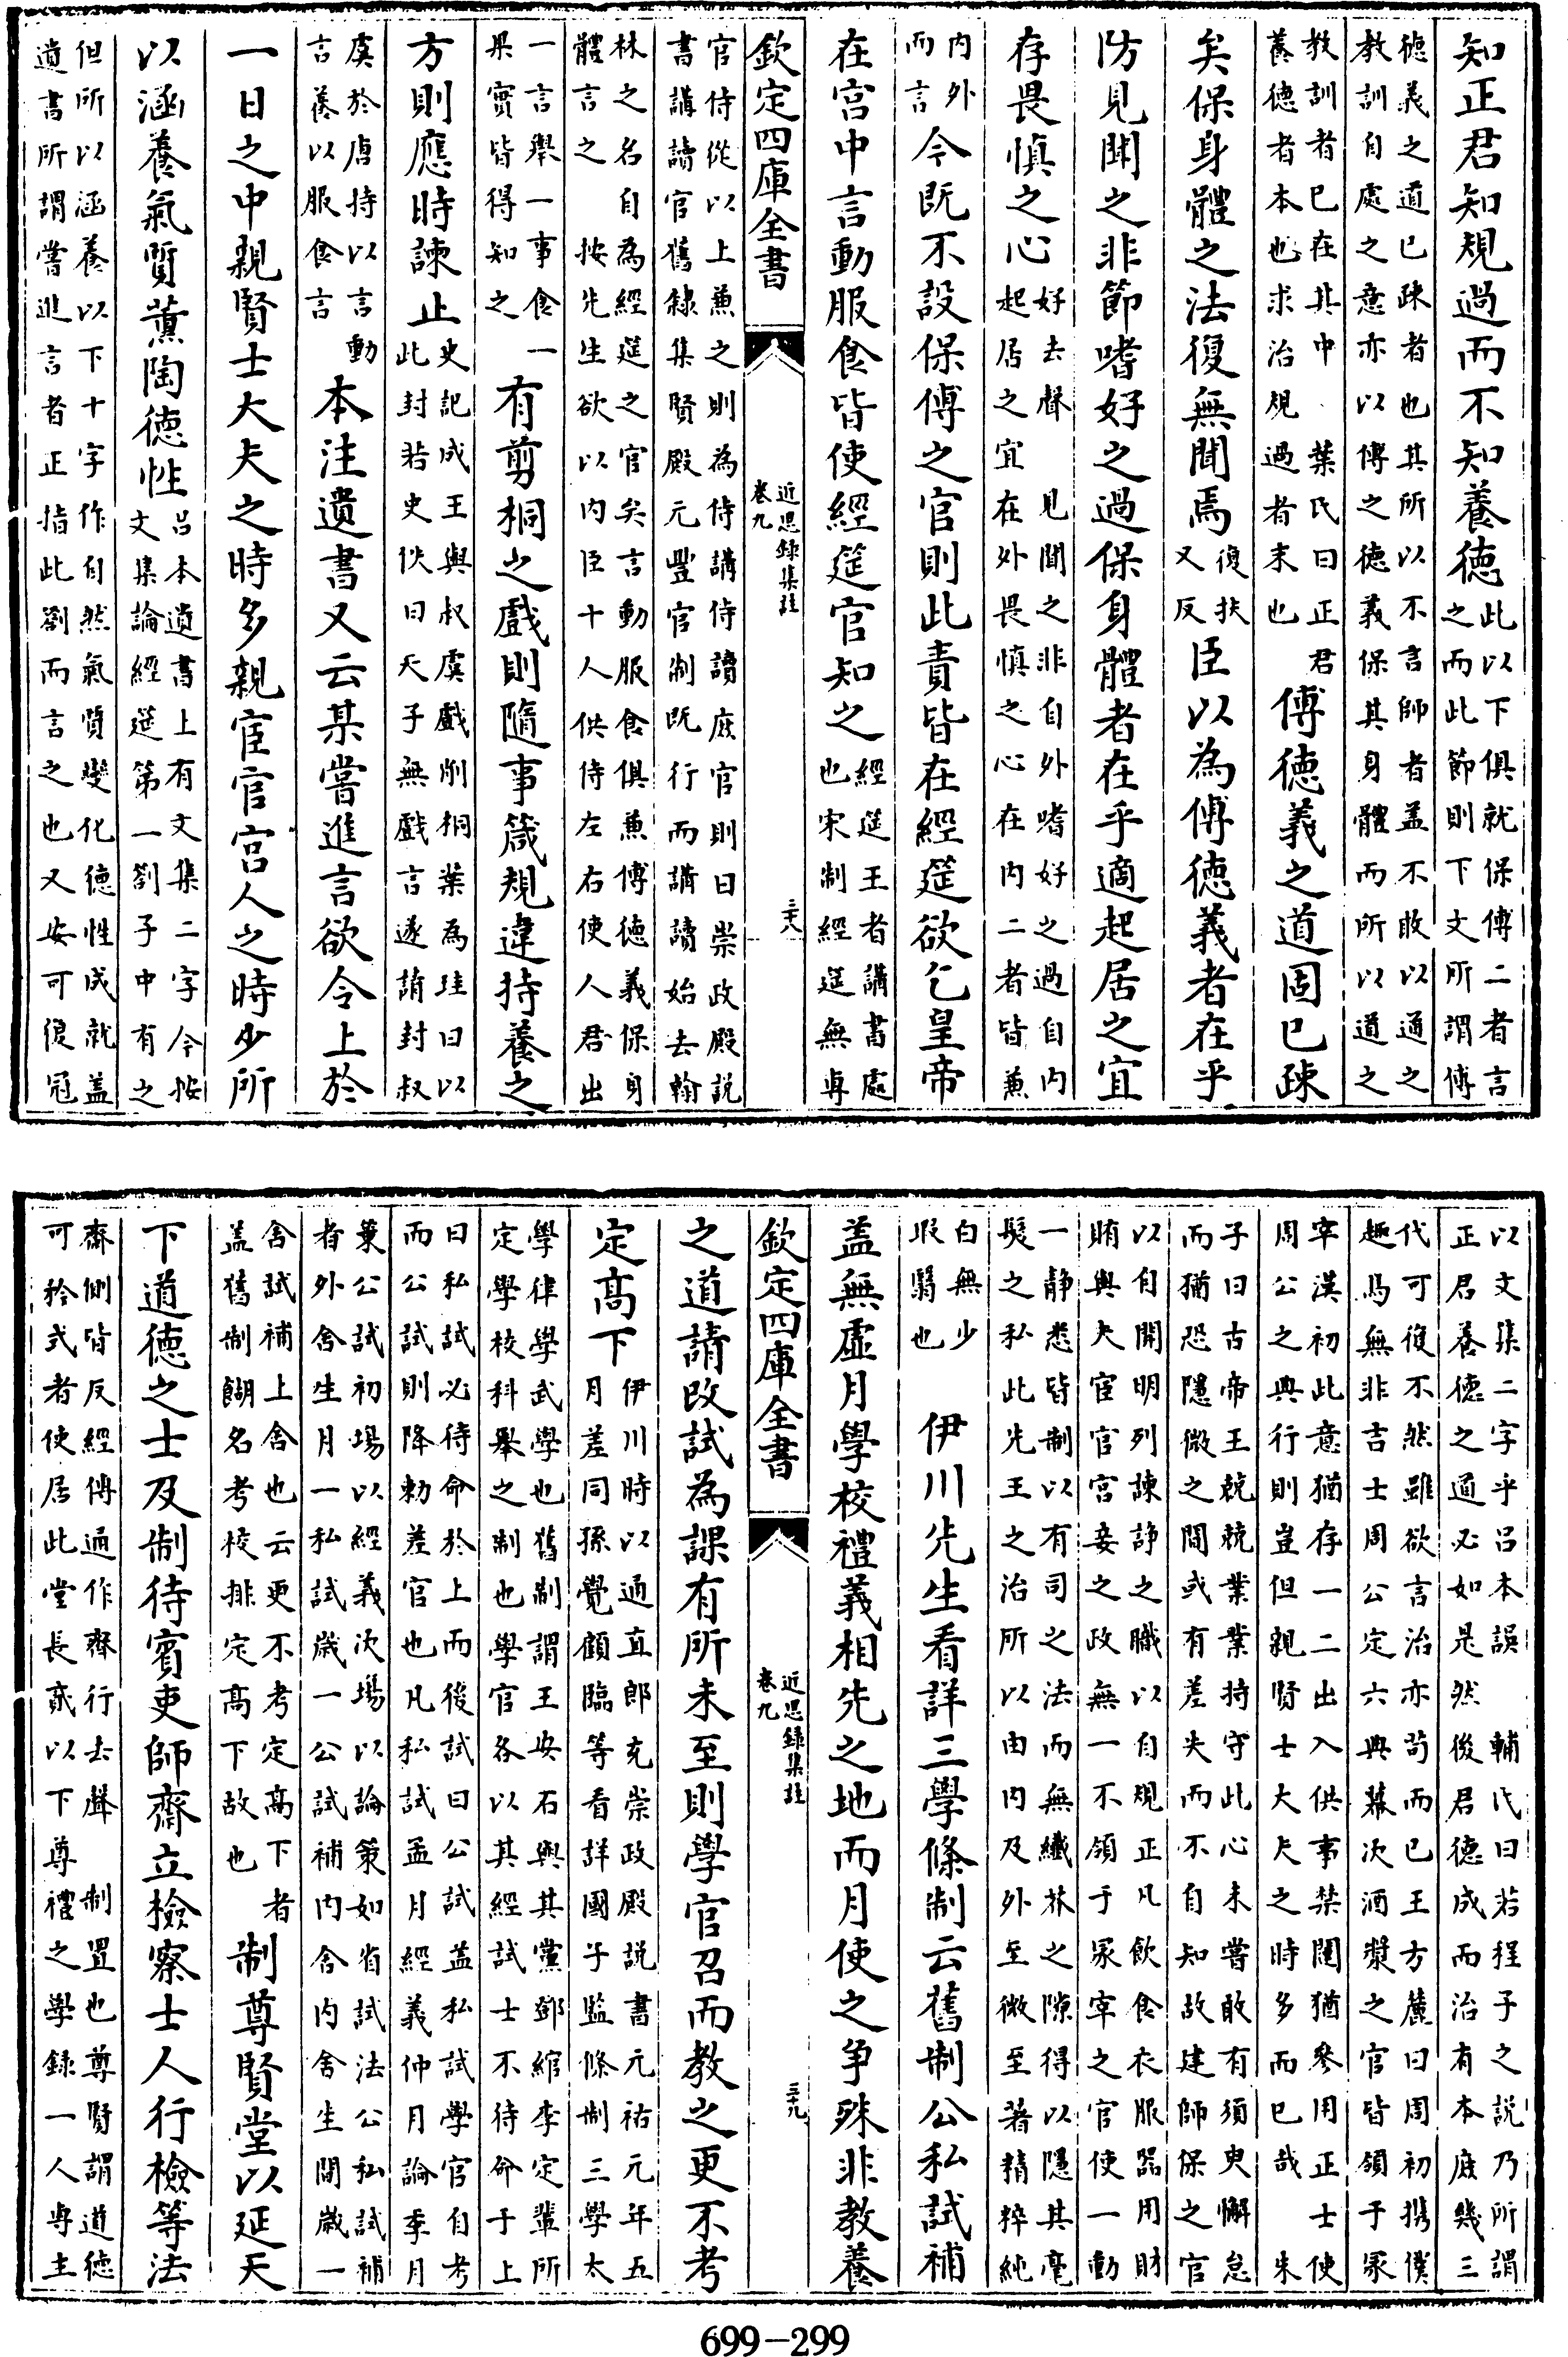 知正君知規過而不知養德此以下俱就保傅二者言之而此節則下文所謂傅
德義之道已疎者也其所以不言師者盖不敢以通之教訓自處之意亦以傅之德義保其身體而所以道之
教訓者已在其中 葉氏曰正君養德者本也求治規過者末也傅德義之道固已疎
矣保身體之法復無聞焉復扶又反臣以為傅德義者在乎
防見聞之非節嗜好之過保身體者在乎適起居之宜
存畏慎之心好去聲 見聞之非自外嗜好之過自内起居之宜在外畏慎之心在内二者皆兼
内外而言今既不設保傅之官則此責皆在經筵欲乞皇帝
在宫中言動服食皆使經筵官知之經筵王者講書處也宋制經筵無専
欽定四庫全書 近思録集註卷九 三十八
官侍從以上兼之則為侍講侍讀庶官則曰崇政殿説書講讀官舊隸集賢殿元豐官制既行而講讀始去翰
林之名自為經筵之官矣言動服食俱兼傅德義保身體言之 按先生欲以内臣十人供侍左右使人君出
一言舉一事食一果實皆得知之有剪桐之戲則隨事箴規違持養之
方則應時諫止史記成王與叔虞戲削桐葉為珪曰以此封若史佚曰天子無戲言遂請封叔
虞於唐持以言動言養以服食言 本注遺書又云某嘗進言欲令上於
一日之中親賢士大夫之時多親宦官宫人之時少所
以涵養氣質薰陶德性吕本遺書上有文集二字今按文集論經筵第一劄子中有之
但所以涵養以下十字作自然氣質變化德性成就盖遺書所謂嘗進言者正指此劄而言之也又安可復冠
以文集二字乎吕本誤 輔氏曰若程子之説乃所謂正君養德之道必如是然後君德成而治有本庶幾三
代可復不然雖欲言治亦苟而已王方麓曰周初携僕趣馬無非吉士周公定六典幕次酒漿之官皆領于冢
宰漢初此意猶存一二出入供事禁闥猶參用正士使周公之典行則豈但親賢士大夫之時多而已哉 朱
子曰古帝王兢兢業業持守此心未嘗敢有須臾懈怠而猶恐隱微之間或有差失而不自知故建師保之官
以自開明列諫諍之職以自規正凡飲食衣服器用財賄與夫宦官宮妾之政無一不領于冢宰之官使一動
一靜悉皆制以有司之法而無纖芥之隙得以隱其毫髮之私此先王之治所以由内及外至微至著精粹純
白無少瑕翳也 伊川先生看詳三學條制云舊制公私試補
盖無虚月學校禮義相先之地而月使之争殊非教養
欽定四庫全書 近思録集註卷九 三十九
之道請改試為課有所未至則學官召而教之更不考
定高下伊川時以通直郎充崇政殿説書元祐元年五月差同孫覺顧臨等看詳國子監條制三學太
學律學武學也舊制謂王安石與其黨鄧綰李定輩所定學校科舉之制也學官各以其經試士不待命于上
曰私試必待命於上而後試曰公試盖私試學官自考而公試則降勅差官也凡私試孟月經義仲月論季月
策公試初場以經義次場以論策如省試法公私試補者外舍生月一私試歲一公試補内舍内舍生間歲一
舍試補上舍也云更不考定高下者盖舊制餬名考校排定高下故也制尊賢堂以延天
下道德之士及制待賓吏師齋立檢察士人行檢等法
齋側皆反經傳通作齊行去聲 制置也尊賢謂道德可矜式者使居此堂長貳以下尊禮之學録一人専主
699-299